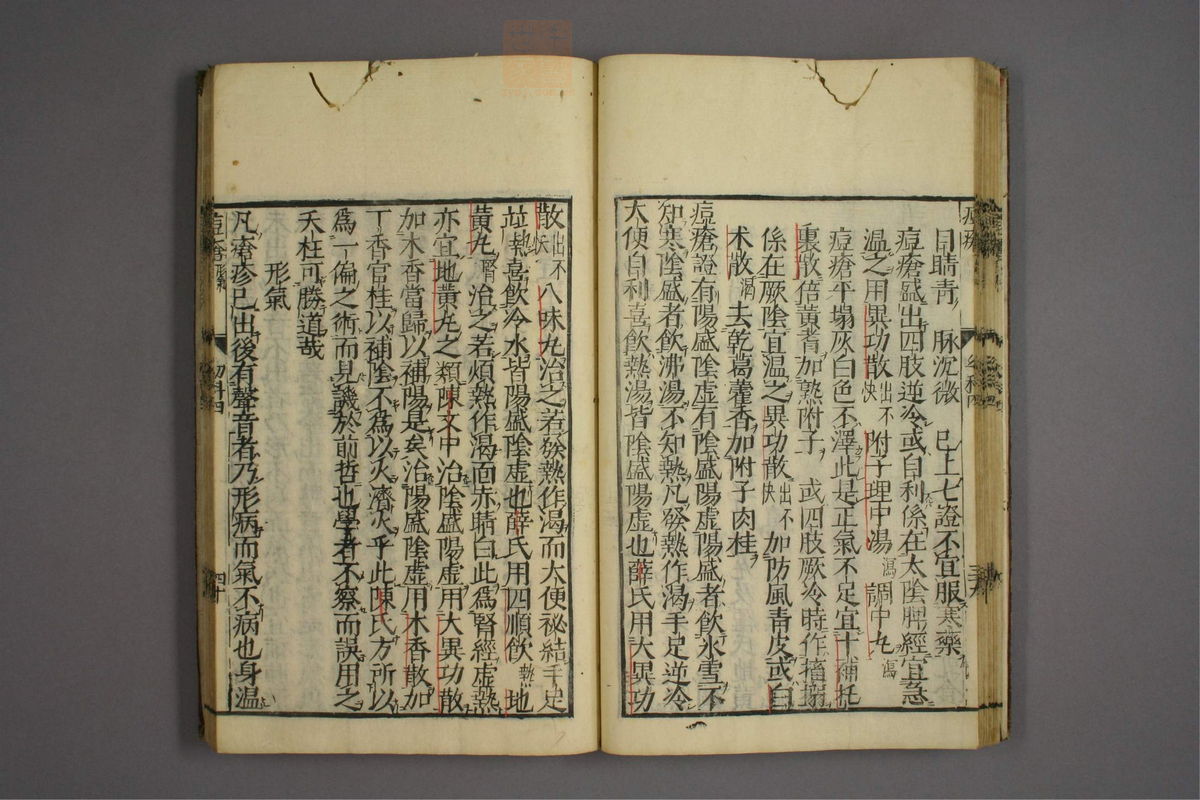 目睛青　脉沉微　已上七證不宜服寒藥
痘瘡盛出四肢逆冷或自利係在太陰脾經宜急
温之用異功散出不快附子理中湯瀉調中丸瀉
痘瘡平塌灰白色不澤此是正氣不足宜十補托
裏散倍黃耆加熟附子　或四肢厥冷時作搐搦
係在厥陰宜温之異功散出不快加防風青皮或白
术散渴去乾葛藿香加附子肉桂
痘瘡證有陽盛陰虛有陰盛陽虛陽盛者飲氷雪不
知寒陰盛者飲沸湯不知熱凡發熱作渴手足逆冷
大便自利喜飲熱湯皆陰盛陽虛也薛氏用大異功
散出不快八味丸治之若發熱作渴而大便祕結手足
並熱喜飲冷水皆陽盛陰虛也薛氏用四順飲熱地
黃丸腎治之若煩熱作渴面赤睛白此為腎經虛熱
亦宜地黃丸之類陳文中治陰盛陽虛用大異功散
加木香當歸以補陽是矣治陽盛陰虛用木香散加
丁香官桂以補陰不為以火濟火乎此陳氏方所以
爲一偏之術而見譏於前哲也學者不察而誤用之
夭枉可勝道哉
形氣
凡瘡疹已出後有聲音者乃形病而氣不病也身温
幼科四
四十